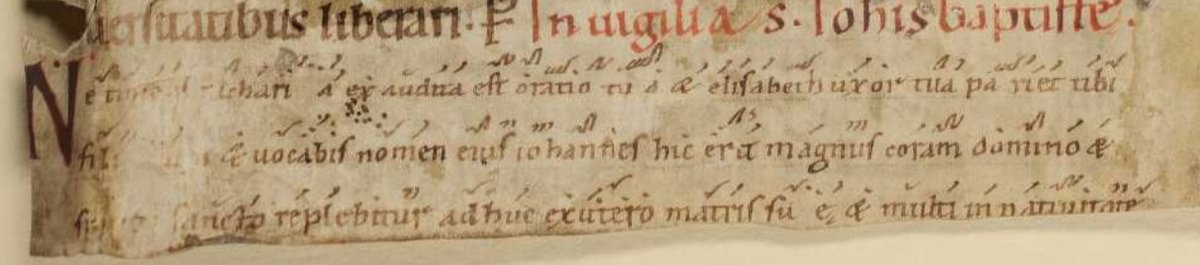 uersitatibus liberari. P In uigilia S. Iohis baptiste.
Ne timeas zachari a exaudita est oratio tu a & elisabeth uxor tua pa riet tibi
filium & uocabis nomen eius iohannes hic erit magnus coram domino &
sancto replebitur adhuc ex utero matris su e, & multi in natiuitate